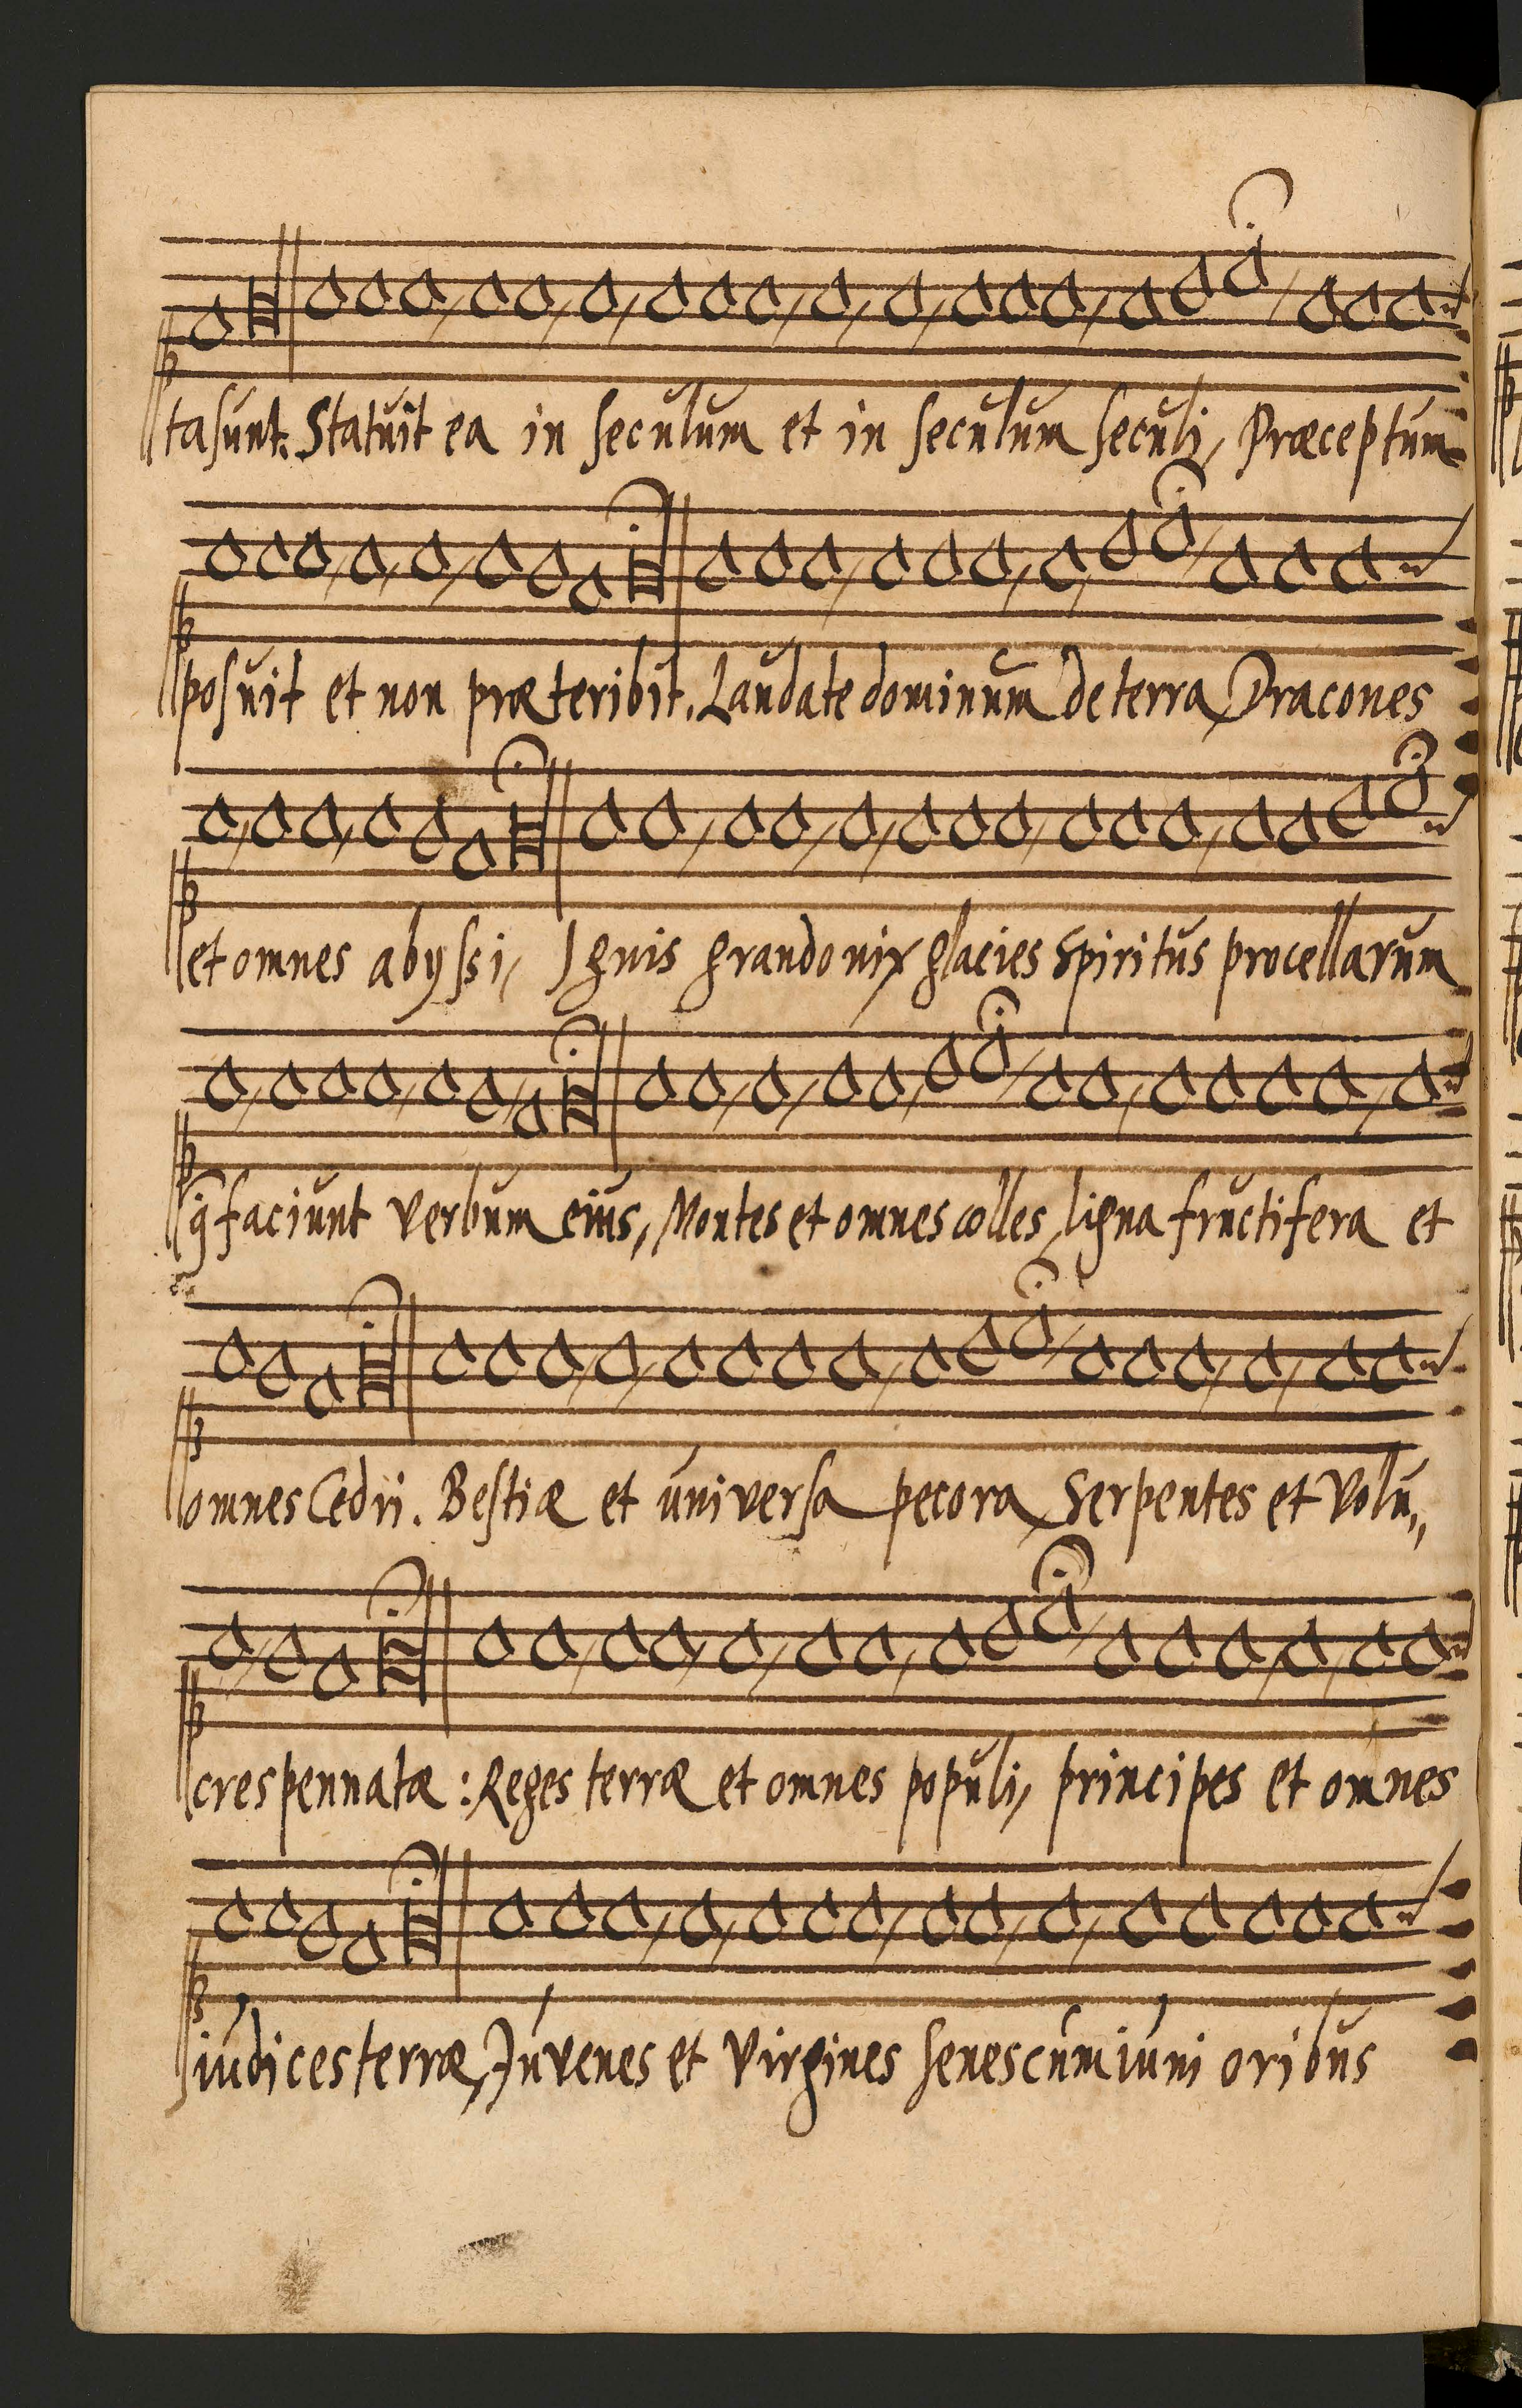 ta sunt. Statuit ea in seculum et in seculum seculi, Præceptum
posuit et non præteribit. Laudate dominum de terra, Dracones
et omnes abyssi, Ignis grando nix glacies Spiritus procellarum
q̄ faciunt verbum eius, Montes et omnes colles, ligna fructifera et
omnes Cedri. Bestiæ et universa pecora, Serpentes et Volu,,
cres pennatæ: Reges terræ et omnes populi, principes et omnes
iudices terræ, Juvenes et Virgines senes cum iuni oribus